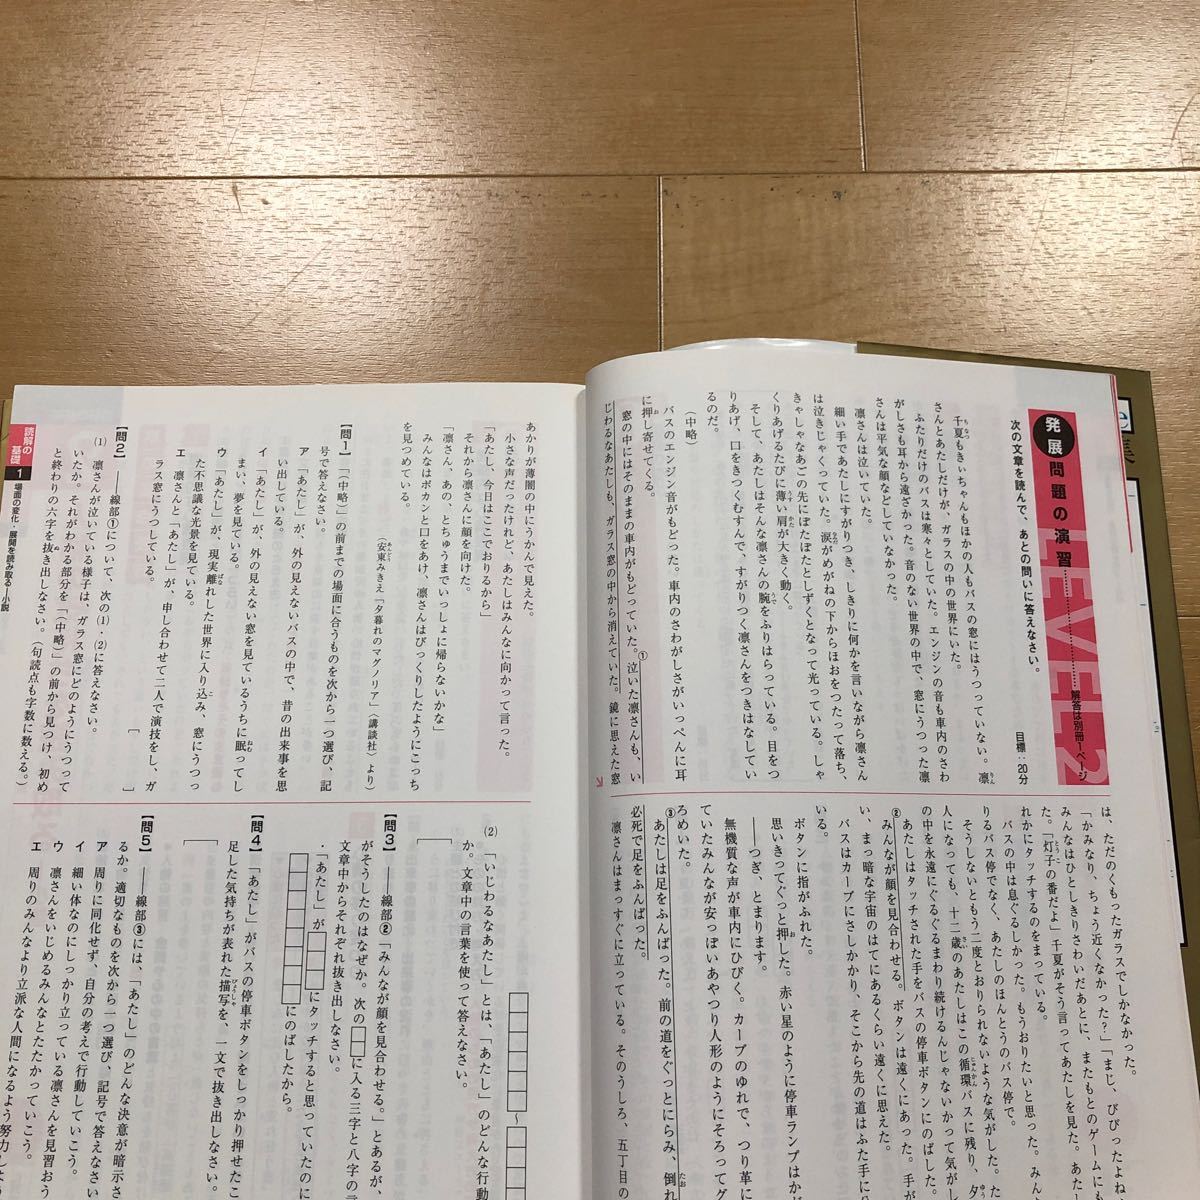 発展問題の演習 LEVEL2
解答は別冊1ページ
次の文章を読んで、あとの問いに答えなさい。
目標：20分
千夏もきぃちゃんもほかの人もバスの窓にはうつっていない。凛
さんとあたしだけが、ガラスの中の世界にいた。
ふたりだけのバスは寒々としていた。エンジンの音も車内のさわ
がしさも耳から遠ざかった。音のない世界の中で、窓にうつった凛
さんは平気な顔などしていなかった。
凛さんは泣いていた。
細い手であたしにすがりつき、しきりに何かを言いながら凛さん
は泣きじゃくっていた。涙がめがねの下からほおをつたって落ち、
きゃしゃなあごの先にぽたぽたとしずくとなって光っている。しゃ
くりあげるたびに薄い肩が大きく動く。
そして、あたしはそんな凛さんの腕をふりはらっている。目をつ
りあげ、口をきつくむすんで、すがりつく凛さんをつきはなしてい
るのだ。
（中略）
バスのエンジン音がもどった。車内のさわがしさがいっぺんに耳
に押し寄せてくる。
窓の中にはそのままの車内がもどっていた。①泣いた凛さんも、い
じわるなあたしも、ガラス窓の中から消えていた。鏡に思えた窓
は、ただのくもったガラスでしかなかった。
「かみなり、ちょう近くなかった？」「まじ、びびったよね
みんなはひとしきりさわいだあとに、またもとのゲームにも
た。「灯子の番だよ」千夏がそう言ってあたしを見た。あた
れかにタッチするのをまっている。
バスの中は息ぐるしかった。もうおりたいと思った。みん
りるバス停でなく、あたしのほんとうのバス停で。
そうしないともう二度とおりられないような気がした。た
人になっても、十二歳のあたしはこの循環バスに残り、夕
の中を永遠にぐるぐるまわり続けるんじゃないかって気がし
あたしはタッチされた手をバスの停車ボタンにのばした。
②みんなが顔を見合わせる。ボタンは遠くにあった。手が
い、まっ暗な宇宙のはてにあるくらい遠くに思えた。
バスはカーブにさしかかり、そこから先の道はふた手に
いる。
ボタンに指がふれた。
思いきってぐっと押した。赤い星のように停車ランプはか
――つぎ、とまります。
無機質な声が車内にひびく。カーブのゆれで、つり革に
ていたみんなが安っぽいあやつり人形のようにそろってグ
ろめいた。
③あたしは足をふんばった。前の道をぐっとにらみ、倒れ
必死で足をふんばった。
凛さんはまっすぐに立っている。そのうしろ、五丁目の
あかりが薄闇の中にうかんで見えた。
小さな声だったけれど、あたしはみんなに向かって言った。
「あたし、今日はここでおりるから」
それから凛さんに顔を向けた。
「凛さん、あの、とちゅうまでいっしょに帰らないかな」
みんなはポカンと口をあけ、凛さんはびっくりしたようにこっち
を見つめている。
（安東みきえ「夕暮れのマグノリア」（講談社）より）
【問1】「（中略）」の前までの場面に合うものを次から一つ選び、記
号で答えなさい。
ア 「あたし」が、外の見えないバスの中で、昔の出来事を思
い出している。
イ 「あたし」が、外の見えない窓を見ているうちに眠ってし
まい、夢を見ている。
ウ 「あたし」が、現実離れした世界に入り込み、窓にうつっ
た不思議な光景を見ている。
エ 凛さんと「あたし」が、申し合わせて二人で演技をし、ガ
ラス窓にうつしている。
［　］
【問2】――線部①について、次の(1)・(2)に答えなさい。
(1) 凛さんが泣いている様子は、ガラス窓にどのようにうつって
いたか。それがわかる部分を「（中略）」の前から見つけ、初め
と終わりの六字を抜き出しなさい。（句読点も字数に数える。）
～
(2) 「いじわるなあたし」とは、「あたし」のどんな行動
か。文章中の言葉を使って答えなさい。
【問3】――線部②「みんなが顔を見合わせる。」とあるが、
がそうしたのはなぜか。次の□に入る三字と八字の言
文章中からそれぞれ抜き出しなさい。
・「あたし」が□□□にタッチすると思っていたのに
□□□□□□□□にのばしたから。
【問4】「あたし」がバスの停車ボタンをしっかり押せたこ
足した気持ちが表れた描写を、一文で抜き出しなさい。
【問5】――線部③には、「あたし」のどんな決意が暗示さ
るか。適切なものを次から一つ選び、記号で答えなさい
ア 周りに同化せず、自分の考えで行動していこう。
イ 細い体なのにしっかり立っている凛さんを見習おう
ウ 凛さんをいじめるみんなとたたかっていこう。
エ 周りのみんなより立派な人間になるよう努力しよ
読解の基礎 1 場面の変化・展開を読み取る―小説